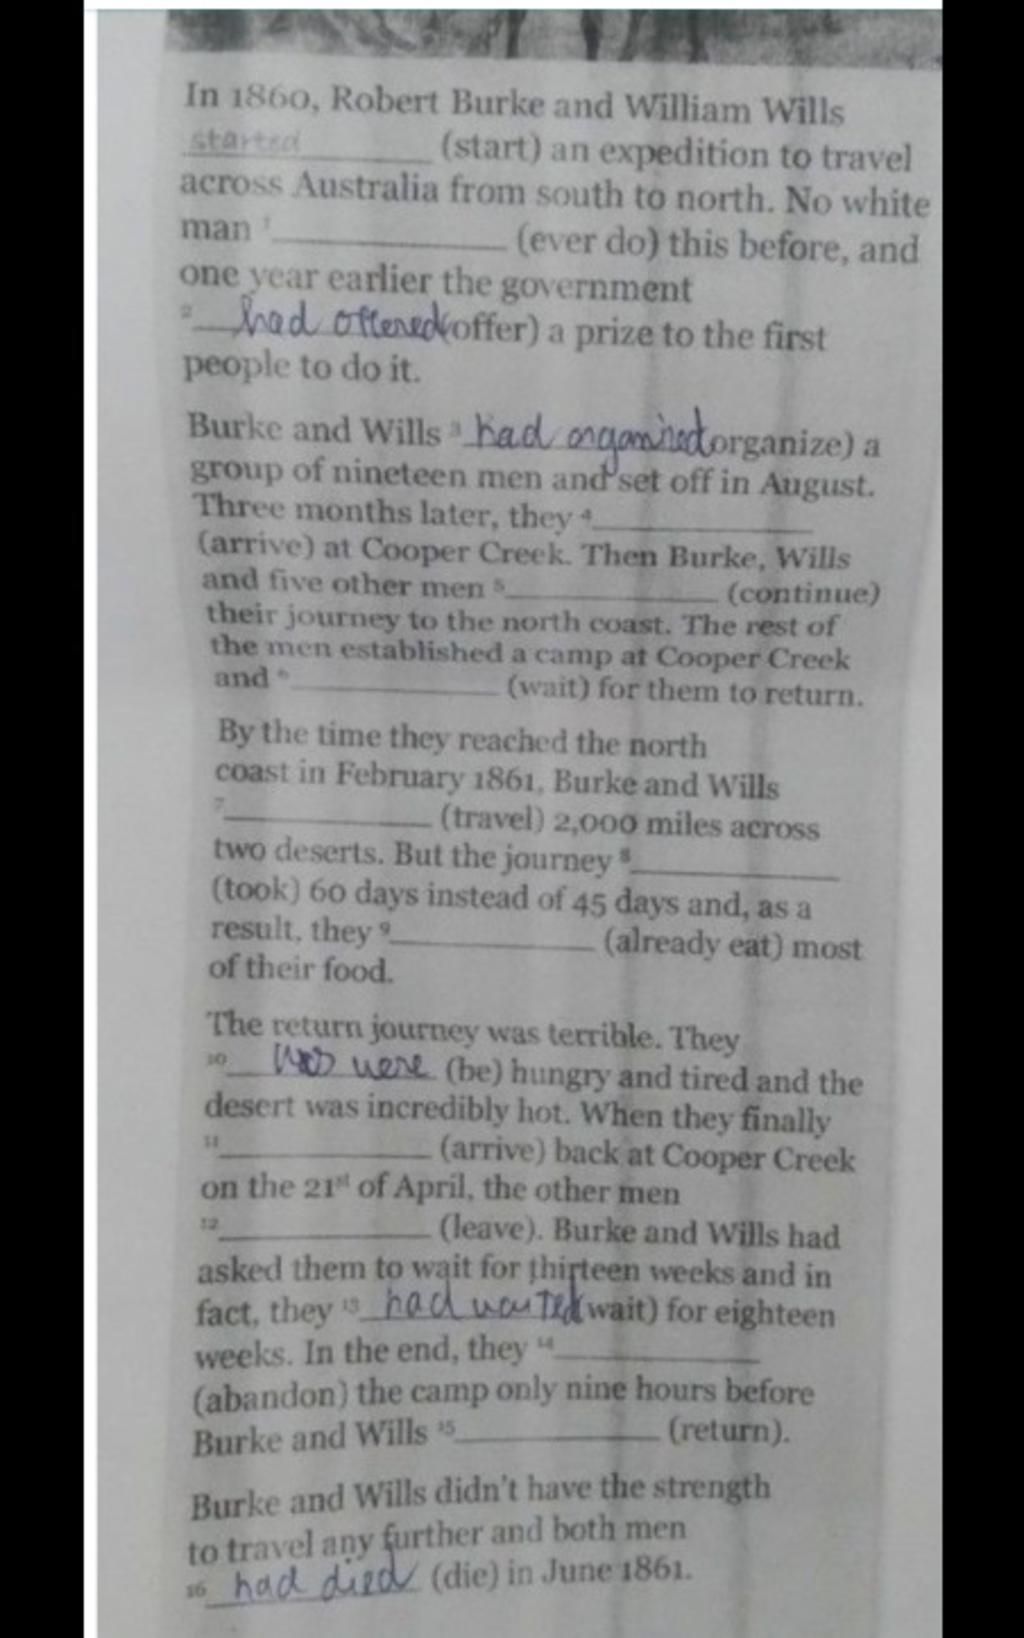 In 1860, Robert Burke and William Wills
started (start) an expedition to travel
across Australia from south to north. No white
man ¹__________ (ever do) this before, and
one year earlier the government
²__had offered (offer) a prize to the first
people to do it.
Burke and Wills ³ had organised organize) a
group of nineteen men and set off in August.
Three months later, they ⁴__________
(arrive) at Cooper Creek. Then Burke, Wills
and five other men ⁵__________ (continue)
their journey to the north coast. The rest of
the men established a camp at Cooper Creek
and ⁶__________ (wait) for them to return.
By the time they reached the north
coast in February 1861, Burke and Wills
⁷__________ (travel) 2,000 miles across
two deserts. But the journey ⁸__________
(took) 60 days instead of 45 days and, as a
result, they ⁹__________ (already eat) most
of their food.
The return journey was terrible. They
¹⁰__ were (be) hungry and tired and the
desert was incredibly hot. When they finally
¹¹__________ (arrive) back at Cooper Creek
on the 21st of April, the other men
¹²__________ (leave). Burke and Wills had
asked them to wait for thirteen weeks and in
fact, they ¹³ had waited wait) for eighteen
weeks. In the end, they ¹⁴__________
(abandon) the camp only nine hours before
Burke and Wills ¹⁵__________ (return).
Burke and Wills didn't have the strength
to travel any further and both men
¹⁶ had died (die) in June 1861.